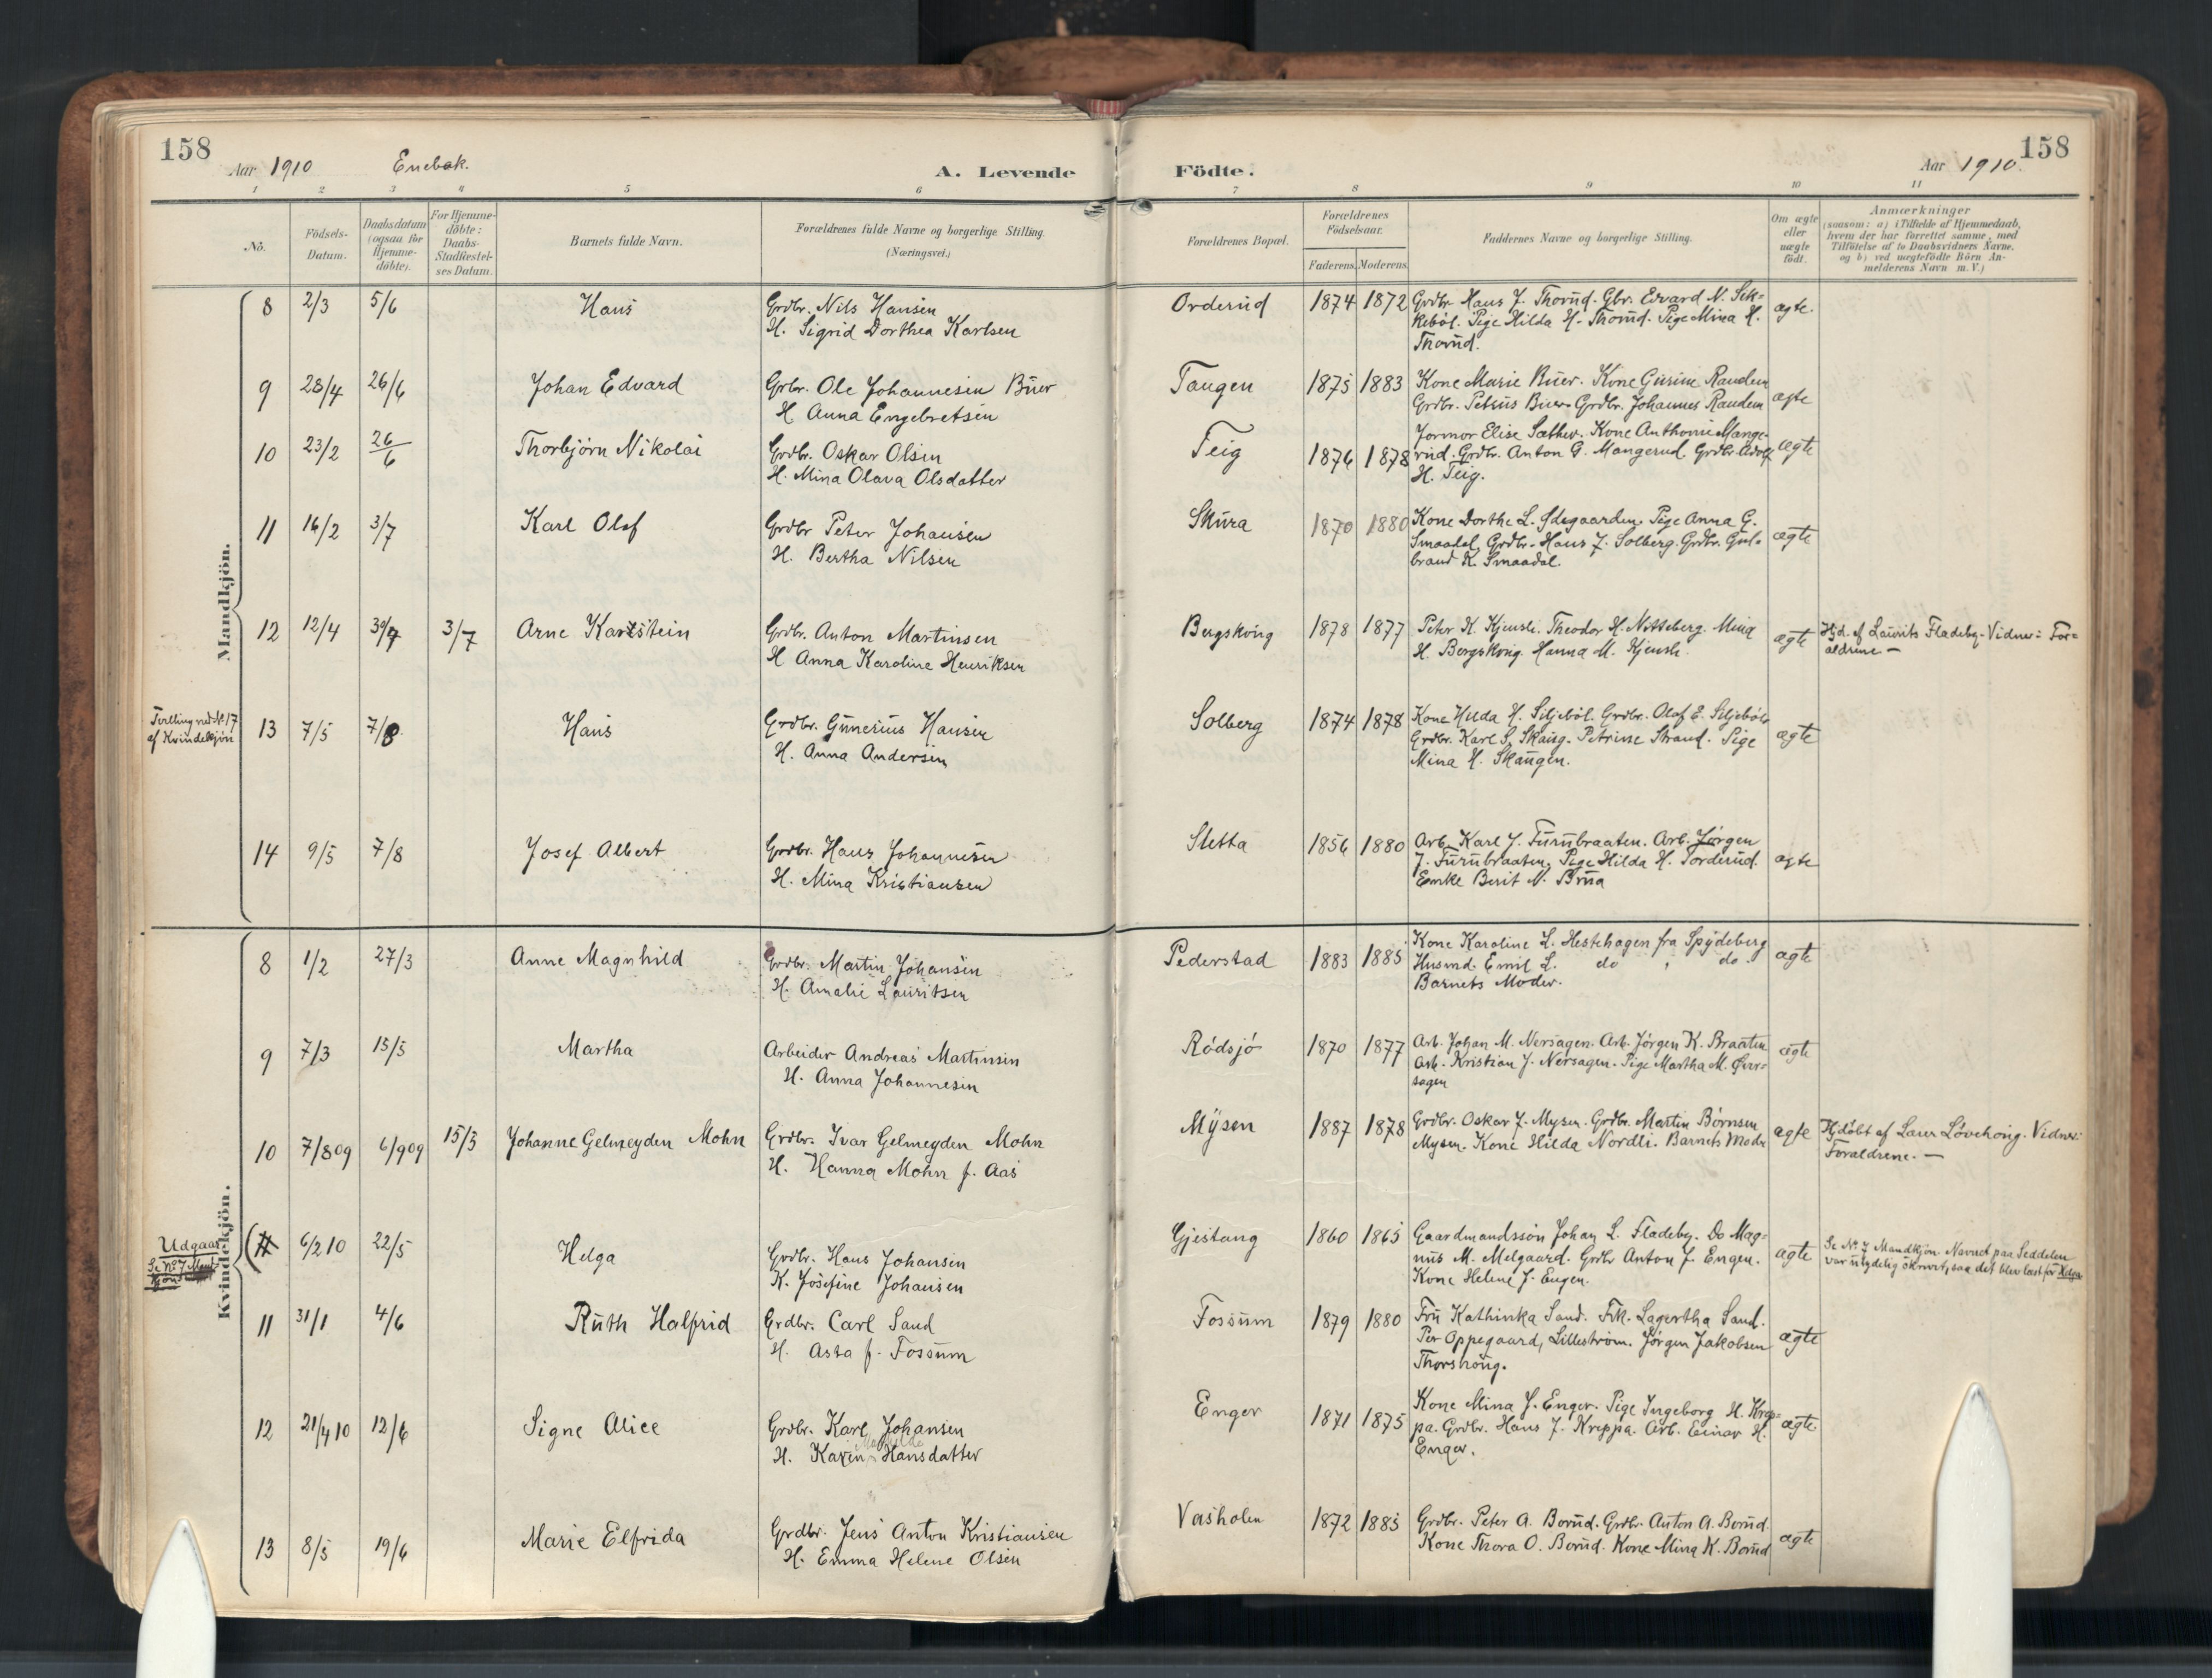 158
Aar 1910 Enebak.
A. Levende
1 2 3 4 5 6
Nô.
Födsels-Datum.
Daabsdatum (ogsaa for Hjemme-döbte).
For Hjemme-döbte: Daabs-Stadfæstel-ses Datum.
Barnets fulde Navn.
Forældrenes fulde Navne og borgerlige Stilling.
(Næringsvei.)
158
Födte.
Aar 1910.
7 8 9 10 11
Forældrenes Bopæl.
Forældrenes Födselsaar.
Faderens. Moderens.
Faddernes Navne og borgerlige Stilling.
Om ægte eller uægte födt.
Anmærkninger
(saasom: a) i Tilfælde af Hjemmedaab,
hvem der har forrettet samme, med
Tilföielse af to Daabsvidners Navne.
og b) ved uægtefödte Börn An-
melderens Navn m.V.)
Mandkjön.
8 2/3 5/6 Hans Grdbr. Nils Hansen
H. Sigrid Dorthea Karlsen
Orderud 1874 1872 Grdbr Hans J. Thorud. Gbr. Edvard N. Sik-
kebøl. Pige Hilda H. Thorud. Pige Mina H.
Thorud.
ægte.
9 28/4 26/6 Johan Edvard Grbr. Ole Johannesen Buer
H Anna Engebretsen
Tangen 1875 1883 Kone Marie Buer. Kone Gurine Randem
Grdbr. Petrus Buer. Grdbr. Johannes Randem
ægte
10 23/2 26/6 Thorbjørn Nikolai Grdbr. Oskar Olsen
H. Mina Olava Olsdatter
Teig 1876 1878 Jormor Elise Sæther. Kone Anthonie Mange-
rud. Grdbr. Anton G. Mangerud. Grdbr. Adolf
H. Teig.
ægte
11 16/2 3/7 Karl Olaf Grdbr Peter Johansen
H. Bertha Nilsen
Skura 1870 1880 Kone Dorthe L. Ødegaarden. Pige Anna G.
Smaadal, Grdbr. Hans J. Solberg. Grdbr. Gul-
brand K. Smaadal.
ægte
12 12/4 3/7 Arne Karstein Grdbr. Anton Martinsen
H Anna Karoline Henriksen
Bergskoug 1878 1877 Peter K. Kjensli. Theodor H. Nitteberg. Mina
H. Bergskoug. Hanna M. Kjensli.
ægte Hjd. af Laurits Fladeby. Vidner: For-
ældrene —
Tvilling med No 17
af Kvindekjøn
13 7/5 7/8 Hans Grdbr. Gunerius Hansen
H. Anna Andersen
Solberg 1874 1878 Kone Hilda H. Siljebøl. Grdbr. Olaf E. Siljebøl.
Grdbr. Karl S. Skaug. Petrine Strand. Pige
Mina H. Skaugen.
ægte
14 9/5 7/8 Josef Albert Grdbr. Hans Johannesen
H. Mina Kristiansen
Sletta 1856 1880 Arb. Karl J. Furubraaten. Arb. Jørgen
J. Furubraaten. Pige Hilda H. Torderud.
Enke Berit N. Brua
ægte
Kvindekjön.
8 1/2 27/3 Anne Magnhild Grdbr. Martin Johansen
H. Amalie Lauritsen
Pederstad 1883 1885 Kone Karoline L. Hestehagen fra Spydeberg
Husmd. Emil L. do do
Barnets Moder.
ægte
9 7/3 15/5 Martha Arbeider Andreas Martinsen
H. Anna Johannesen
Rødsjø 1870 1877 Arb. Johan M. Nersagen. Arb. Jørgen K. Braaten
Arb. Kristian J. Nersagen. Pige Martha M. Øver-
sagen
ægte
10 7/8 09 6/9 09 15/5 Johanne Gelmeyden Mohn Grdbr. Ivar Gelmeyden Mohn
H. Hanna Mohn f. Aas
Mysen 1887 1878 Grdbr. Oskar J. Mysen. Grdbr. Martin Børnsen
Mysen. Kone Hilda Nordli. Barnets Moder
ægte Hjdøbt af Laura Løvehoug. Vidner:
Forældrene. —
Udgaar.
Se No 7 Mand-
kjøn
6/2 10 22/5 Helga Grdbr. Hans Johansen
K. Josefine Johansen
Gjestang 1860 1865 Gaardmandssøn Johan L. Fladeby. Do Mag-
nus M. Melgaard. Grdbr Anton J. Engen.
Kone Helene J. Engen.
ægte Se No 7 Mandkjøn. Navnet paa Seddelen
var utydelig skrevet, saa det blev læst for Helga
11 31/1 4/6 Ruth Halfrid Grdbr. Carl Sand
H. Asta f. Fossum
Fossum 1879 1880 Fru Kathinka Sand. Frk. Lagertha Sand.
Per Oppegaard, Lillestrøm. Jørgen Jakobsen
Thorshoug.
ægte
12 21/4 10 12/6 Signe Alice Grdbr. Karl Johansen
H. Karen Mathilde Hansdatter
Enger 1871 1875 Kone Mina J. Enger. Pige Ingeborg H. Krep-
pa. Grdbr. Hans J. Kreppa. Arb. Einar H.
Enger.
ægte.
13 8/5 19/6 Marie Elfrida Grdbr. Jens Anton Kristiansen
H. Emma Helene Olsen
Vasholen 1872 1885 Grdbr. Peter A. Borud. Grdbr. Anton A. Borud.
Kone Thora O. Borud. Kone Mina K. Borud
ægte